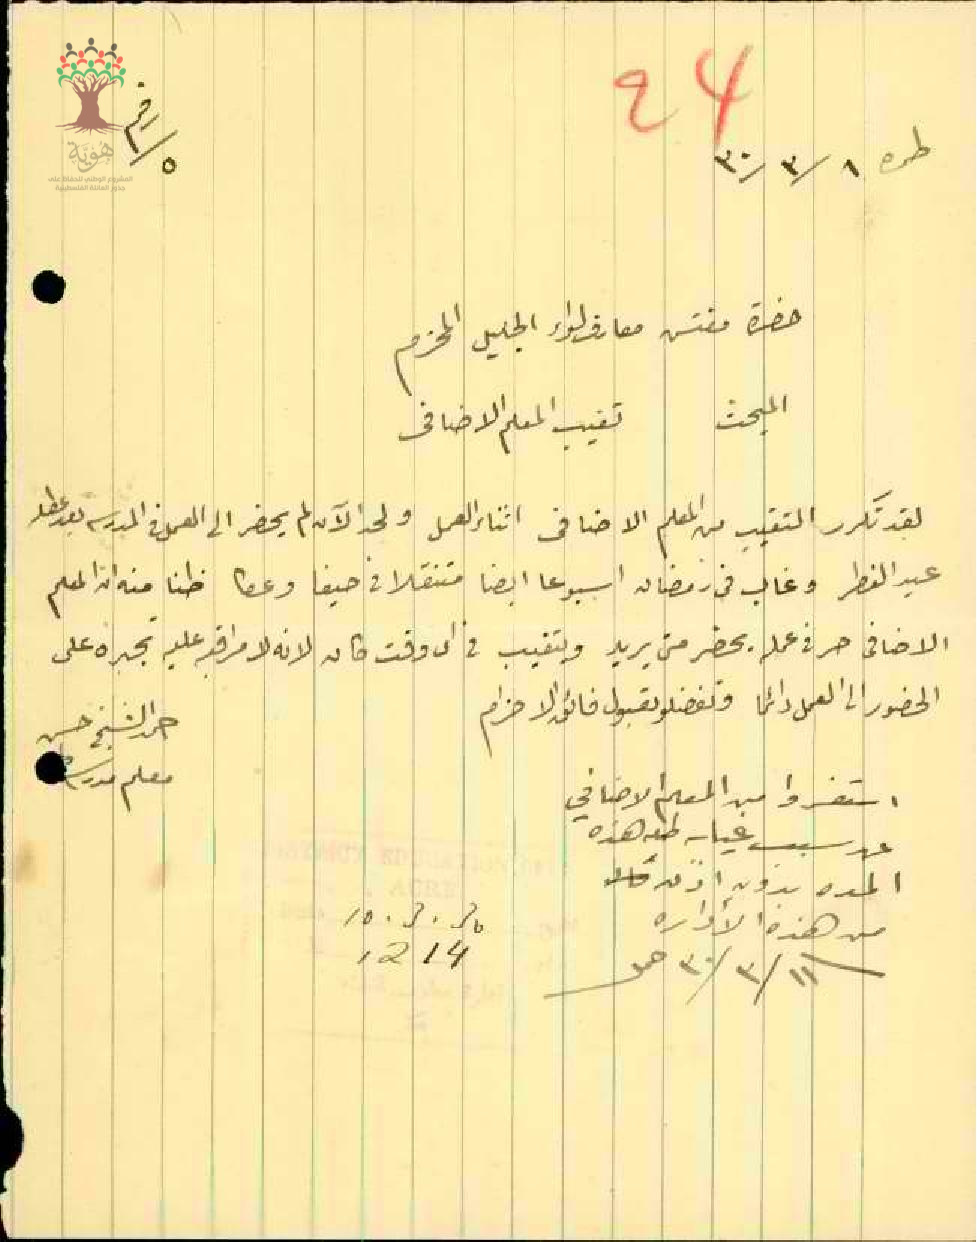 هوية
المشروع الوطني للحفاظ على
جذور العائلة الفلسطينية
رقم
٥
24
طمره ٨/٣/٣٠
حضرة مفتش معارف لواء الجليل المحترم
المبحث تغيب المعلم الاضافي
لقد تكرر التغيب من المعلم الاضافي اثناء العمل ولحد الآن لم يحضر الى العمل في المدرسه بعد عطلة
عيد الفطر وغاب في رمضان اسبوعا ايضا متنقلا في حيفا وعكا ظنا منه ان المعلم
الاضافي حر في عمله يحضر متى يريد ويتغيب في اي وقت كان لانه لا مراقبه عليه تجبره على
الحضور الى العمل دائما وتفضلوا بقبول فائق الاحترام
الشيخ حسن
معلم مدرسة
استفسروا من المعلم الاضافي
عن سبب غيابه طيلة هذه
المده بدون اذن
من هذه الاداره
١١/٣/٣٠
EDUCATION
ACRE